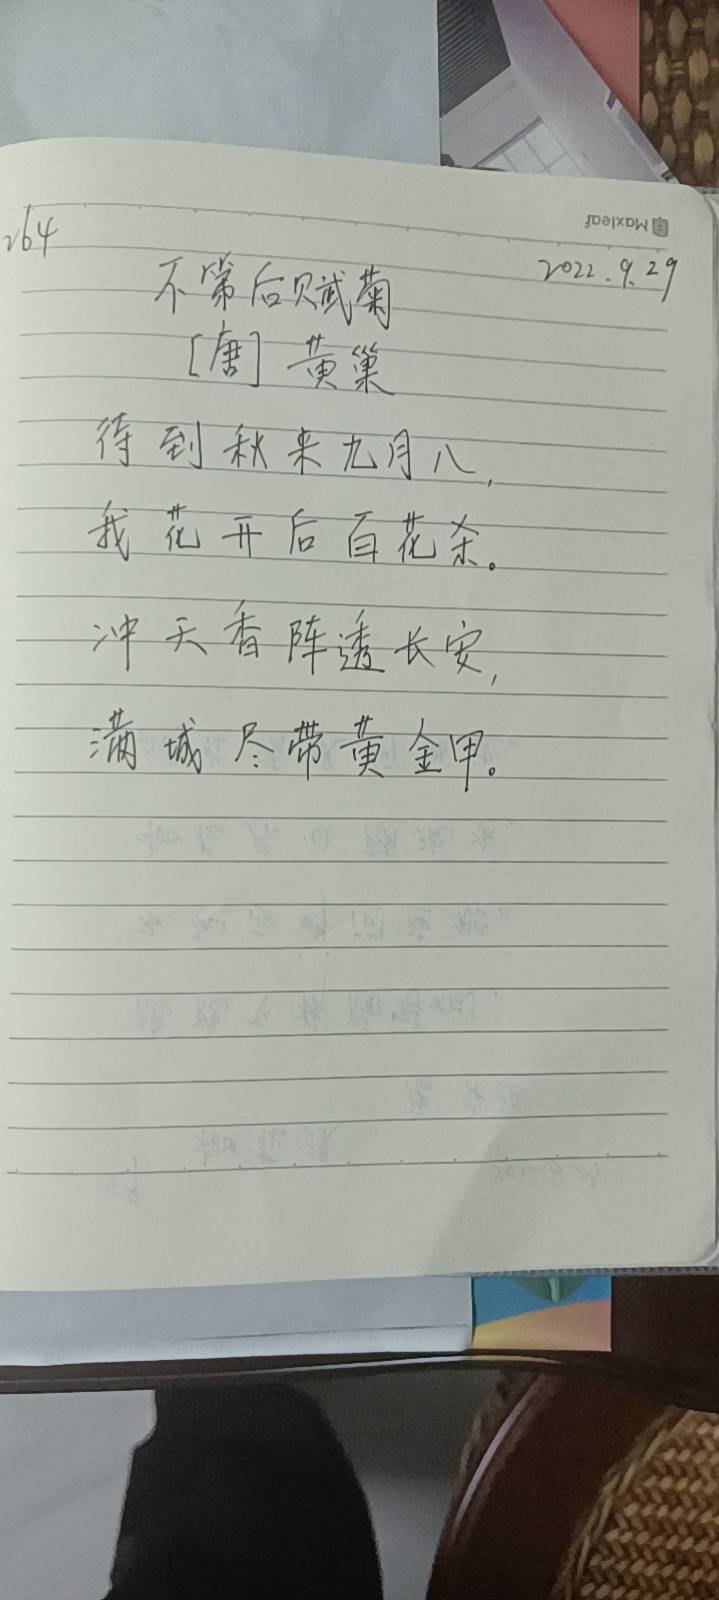 Maxleaf
264
2022.9.29
不第后赋菊
[唐] 黄巢
待到秋来九月八,
我花开后百花杀。
冲天香阵透长安,
满城尽带黄金甲。